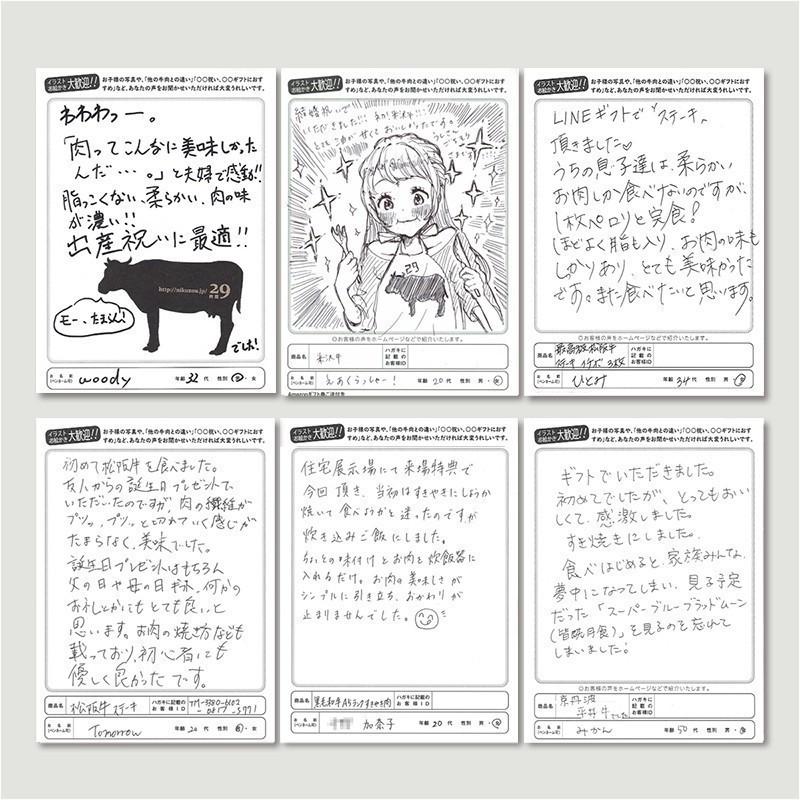 イラスト お絵かき 大歓迎!!
お子様の写真や、「他の牛肉との違い」「〇〇祝い、〇〇ギフトにおすすめ」など、あなたの声をお聞かせいただければ大変うれしいです。
わわわっー。
「肉ってこんなに美味しかったんだ…。」と夫婦で感動!!
脂っこくない、柔らかい、肉の味
が濃い!!
出産祝いに最適!!
http://nikuzou.jp/ 29
モー、たまらん!
でした!
お名前(ペンネーム可) woody 年齢 32代 性別 男・女
イラスト お絵かき 大歓迎!!
お子様の写真や、「他の牛肉との違い」「〇〇祝い、〇〇ギフトにおすすめ」など、あなたの声をお聞かせいただければ大変うれしいです。
結婚祝いで
いただきました!!!
29
◎お客様の声をホームページなどで紹介いたします。
商品名 米沢牛 ハガキに記載のお客様ID
お名前(ペンネーム可) 年齢 20代 性別 男・女
イラスト お絵かき 大歓迎!!
お子様の写真や、「他の牛肉との違い」「〇〇祝い、〇〇ギフトにおすすめ」など、あなたの声をお聞かせいただければ大変うれしいです。
LINEギフトで"ステーキ"
頂きました♡
うちの息子達は、柔らかい
お肉しか食べないのですが、
1枚ペロリと完食!
ほどよく脂も入り、お肉の味も
しっかりあり、とても美味かった
です。また食べたいと思います。
◎お客様の声をホームページなどで紹介いたします。
商品名 最高級松阪牛 ステーキ イチボ 3枚 ハガキに記載のお客様ID
お名前(ペンネーム可) ひとみ 年齢 34代 性別 男・女
イラスト お絵かき 大歓迎!!
お子様の写真や、「他の牛肉との違い」「〇〇祝い、〇〇ギフトにおすすめ」など、あなたの声をお聞かせいただければ大変うれしいです。
初めて松阪牛を食べました。
友人からの誕生日プレゼントで
いただいたのですが、肉の繊維が
プツッ、プツッと切れていく感じが
たまらなく、美味でした。
誕生日プレゼントはもちろん
父の日や母の日ギフト、何かの
お礼とかにもとても良いと
思います。お肉の焼き方なども
載っており、初心者にも
優しく良かったです。
商品名 松阪牛ステーキ ハガキに記載のお客様ID
お名前(ペンネーム可) Tomorrow 年齢 20代 性別 男・女
イラスト お絵かき 大歓迎!!
お子様の写真や、「他の牛肉との違い」「〇〇祝い、〇〇ギフトにおすすめ」など、あなたの声をお聞かせいただければ大変うれしいです。
住宅展示場にて来場特典で
今回頂き、当初はすきやきにしようか
焼いて食べようかと迷ったのですが
炊き込みご飯にしました。
ちょっとの味付けとお肉を炊飯器に
入れるだけ。お肉の美味しさが
シンプルに引き立ち、おかわりが
止まりませんでした。
商品名 黒毛和牛A5ランクすきやき肉 ハガキに記載のお客様ID
お名前(ペンネーム可) 加奈子 年齢 20代 性別 男・女
イラスト お絵かき 大歓迎!!
お子様の写真や、「他の牛肉との違い」「〇〇祝い、〇〇ギフトにおすすめ」など、あなたの声をお聞かせいただければ大変うれしいです。
ギフトでいただきました。
初めてでしたが、とってもおい
しくて、感激しました。
すき焼きにしました。
食べはじめると、家族みんな、
夢中になってしまい、見る予定
だった「スーパーブルーブラッドムーン
(皆既月食)」を見るのを忘れて
しまいました!
◎お客様の声をホームページなどで紹介いたします。
商品名 京丹波 平井牛でした ハガキに記載のお客様ID
お名前(ペンネーム可) みかん 年齢 50代 性別 男・女